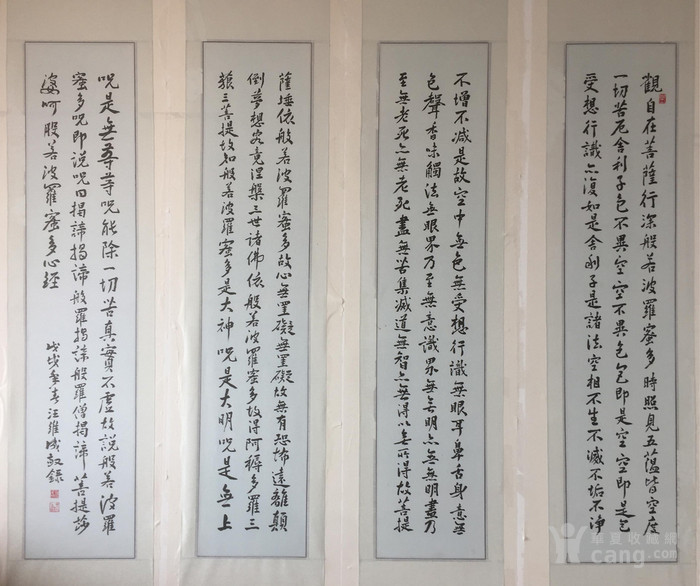 觀自在菩薩行深般若波羅蜜多時照見五蘊皆空度
一切苦厄舍利子色不異空空不異色色即是空空即是色
受想行識亦復如是舍利子是諸法空相不生不滅不垢不淨
不增不減是故空中無色無受想行識無眼耳鼻舌身意無
色聲香味觸法無眼界乃至無意識界無無明亦無無明盡乃
至無老死亦無老死盡無苦集滅道無智亦無得以無所得故菩提
薩埵依般若波羅蜜多故心無罣礙無罣礙故無有恐怖遠離顛
倒夢想究竟涅槃三世諸佛依般若波羅蜜多故得阿耨多羅三
藐三菩提故知般若波羅蜜多是大神咒是大明咒是無上
咒是無等等咒能除一切苦真實不虛故說般若波羅
蜜多咒即說咒曰揭諦揭諦般羅揭諦般羅僧揭諦菩提莎
婆呵般若波羅蜜多心經
戊戌年春汪維成敬錄
華夏收藏網
cang.com